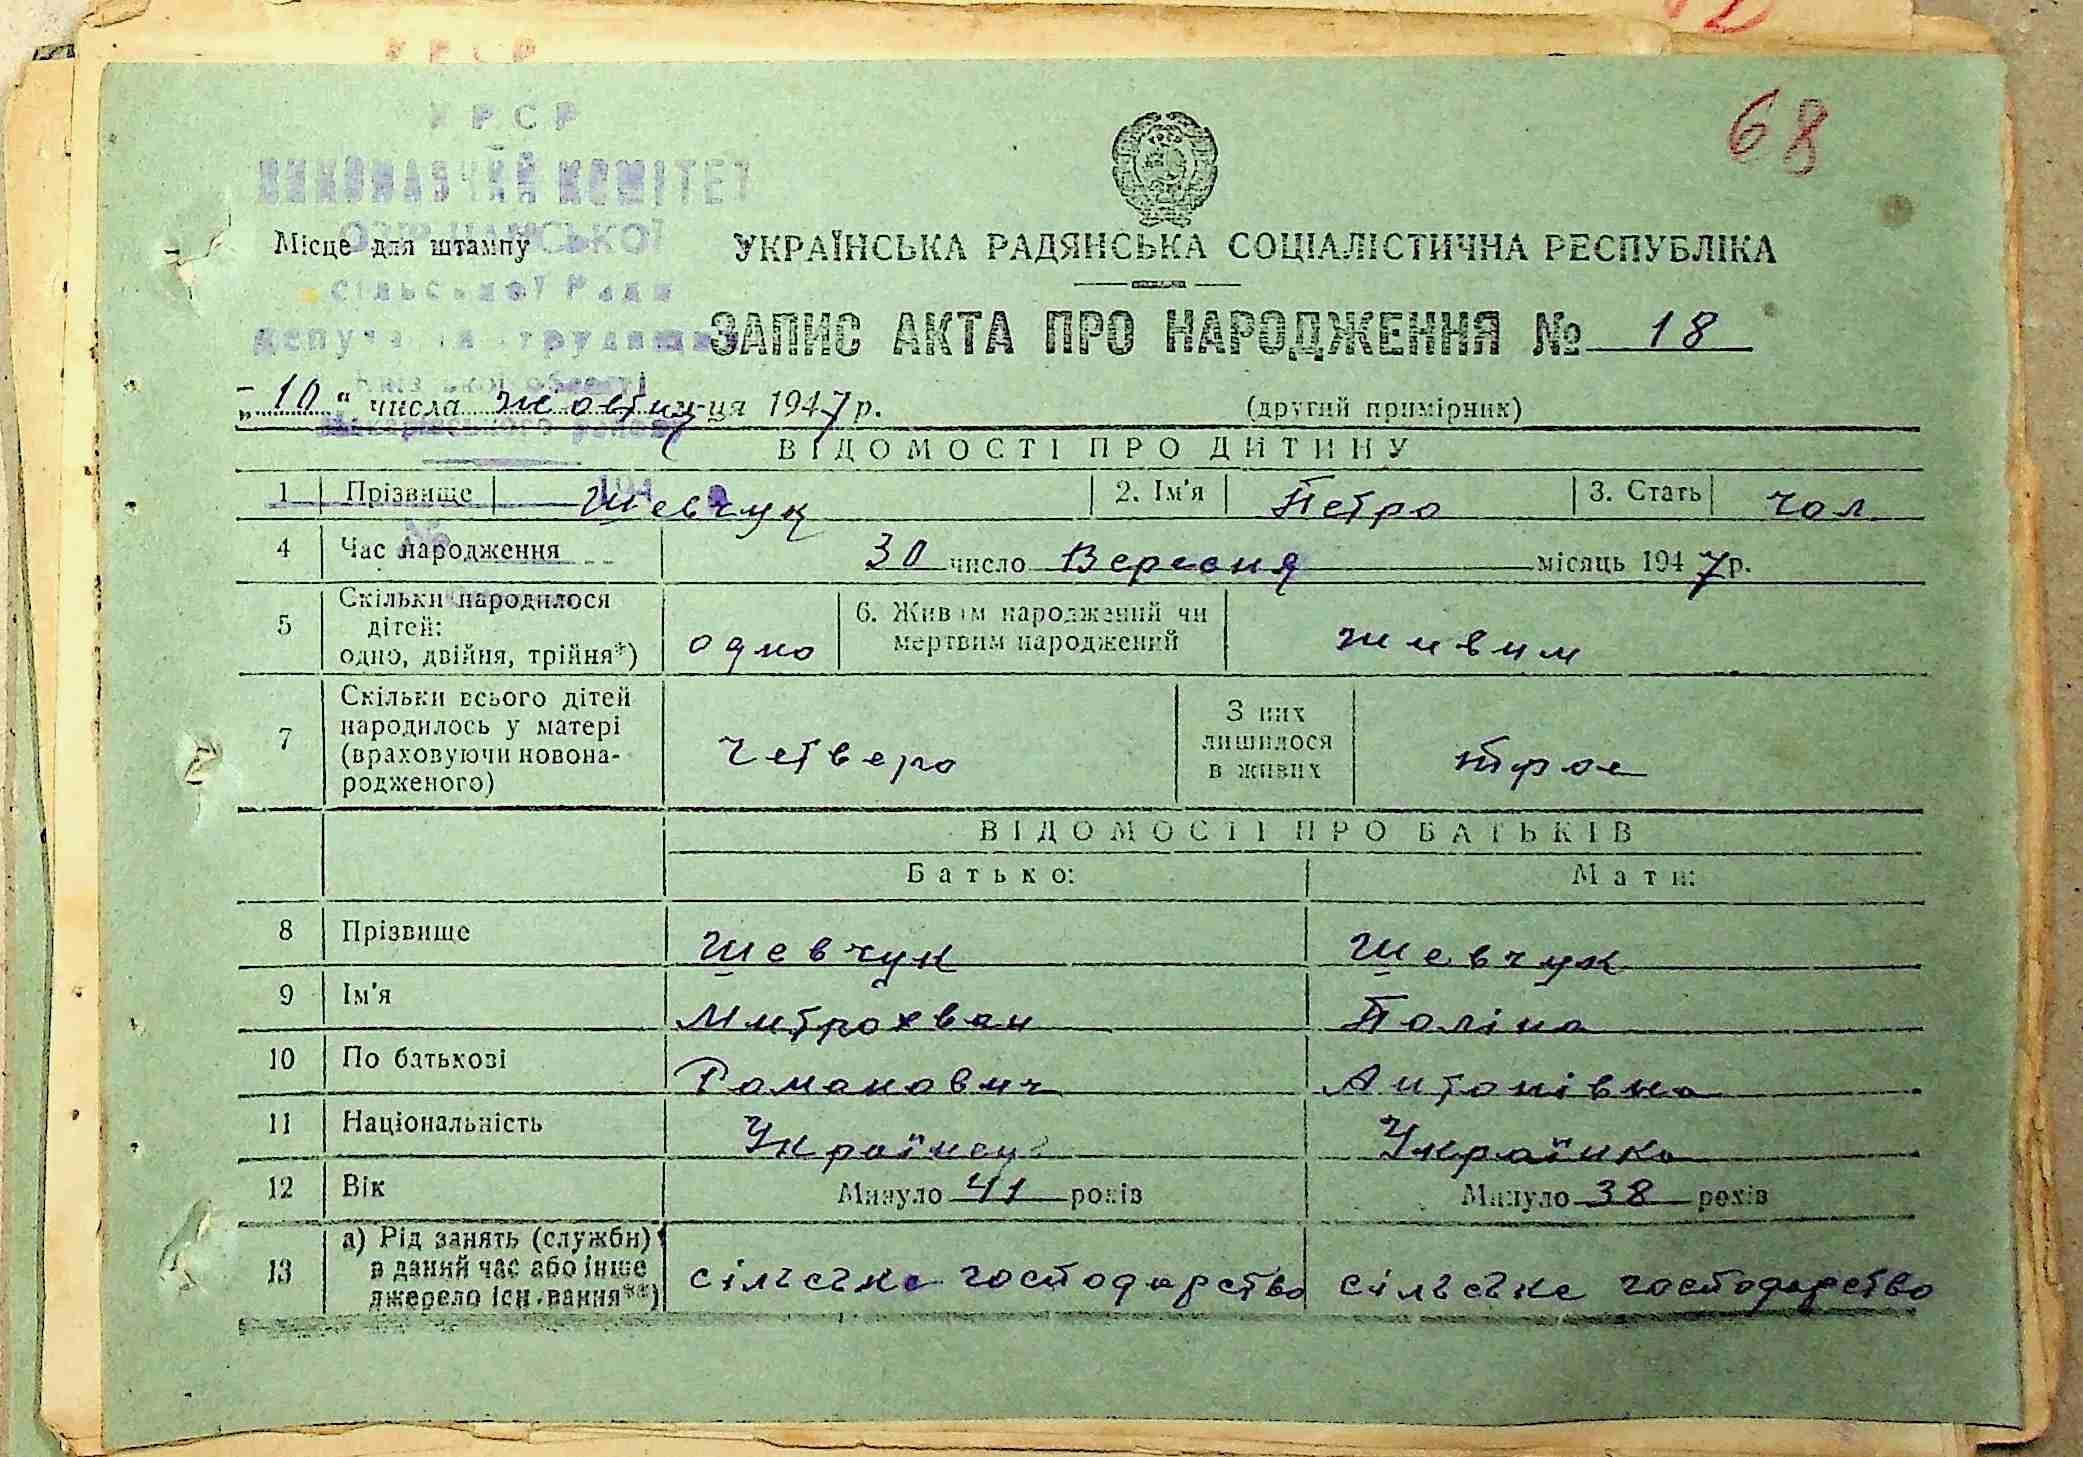 УРСР
68
УРСР
ВИКОНАВЧИЙ КОМІТЕТ
Місце для штампу
УКРАЇНСЬКА РАДЯНСЬКА СОЦІАЛІСТИЧНА РЕСПУБЛІКА
сільської Ради
депутатів трудящих
ЗАПИС АКТА ПРО НАРОДЖЕННЯ № 18
Київської області
„10“ числа жовтня ця 1947 р. (другий примірник)
Макарівського району
ВІДОМОСТІ ПРО ДИТИНУ
1 Прізвище Шевчук 2. Ім'я Петро 3. Стать чол
194
№
4 Час народження 30 число Вересня місяць 1947 р.
5 Скільки народилося дітей: одно, двійня, трійня*) одно 6. Живим народжений чи мертвим народжений живим
7 Скільки всього дітей народилось у матері (враховуючи новонародженого) четверо З них лишилося в живих троє
ВІДОМОСТІ ПРО БАТЬКІВ
Батько: Мати:
8 Прізвище Шевчук Шевчук
9 Ім'я Митрохван Поліна
10 По батькові Романович Антонівна
11 Національність Українець Українка
12 Вік Минуло 41 років Минуло 38 років
13 а) Рід занять (служби) в даний час або інше джерело існування**) сільське господарство сільське господарство